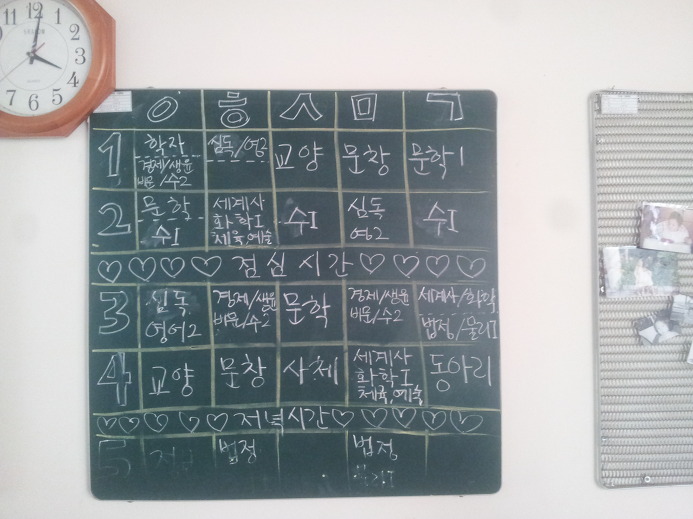 ㅇ ㅎ ㅅ ㅁ ㄱ
1 학자 심독/영2 교양 문창 문학1
경제/생윤
비문/수2
2 문학 세계사 수I 심독 수I
수I 화학I 영2
체육,예술
점심시간
3 심독 경제/생윤 문학 경제/생윤 세계사/화학
영어2 비문/수2 비문/수2 법정/물리I
4 교양 문창 사체 세계사 동아리
화학I
체육,예술
저녁시간
5 법정 법정